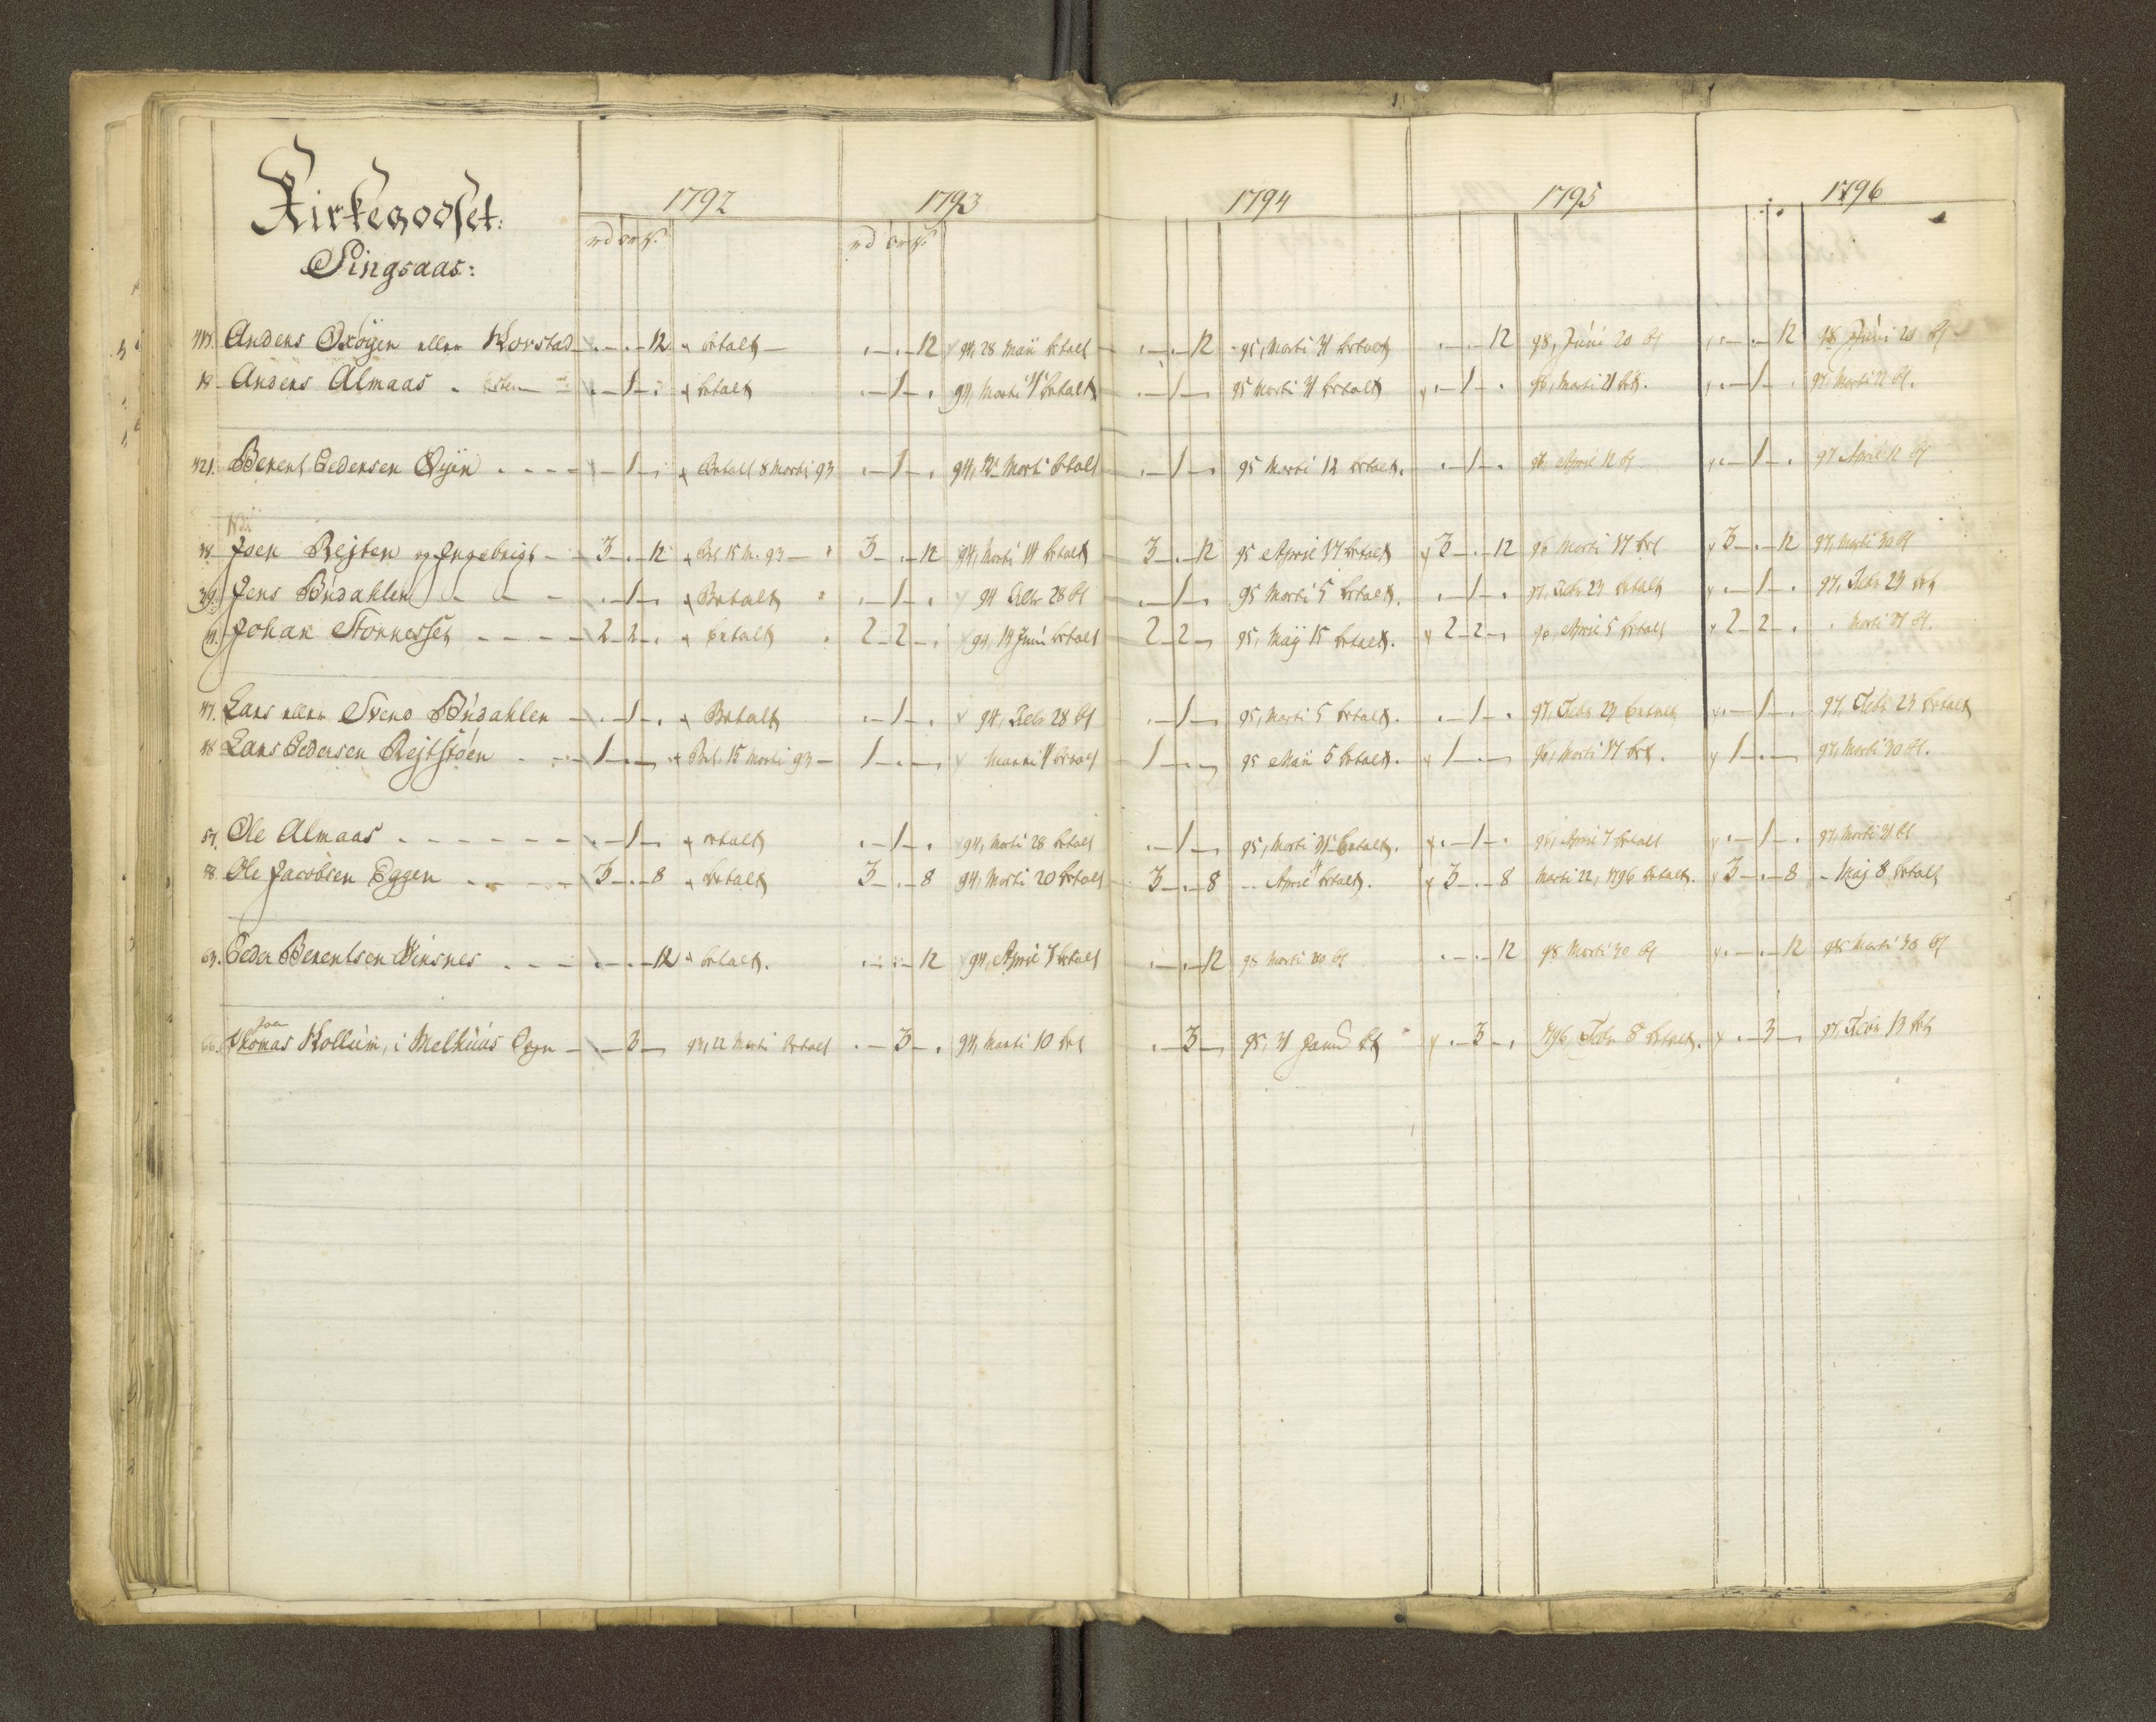 Kirkegodset:
Singsaas:
1792 1793 1794 1795 1796
rd ort s. rd ort s.
Anders Oxøyen eller Korstad . . 12 betalt . . 12 94, 28 Maii betalt . . 12 95, Marti 31 betalt . . 12 98, Junii 20 bt . . 12 98 Junii 20 bt
Anders Almaas . 1 . betalt . 1 . 94, Marti betalt . 1 . 95 Marti 31 betalt . 1 . 96, Marti 21 bet. . 1 . 97, Marti 22 bt.
121. Berent Pedersen Øyen . 1 . Betalt 8 Marti 93 . 1 . 94, Marti betalt . 1 . 95 Marti 12 betalt. . 1 . 96, April 12 bt . 1 . 97 April 12 bt
38. Joen Rejten og Ingebrigt 3 . 12 Bet. 15 M. 93 3 . 12 94, Marti 14 betalt 3 . 12 95 April 17 betalt 3 . 12 96 Marti 17 bet 3 . 12 97, Marti 30 bt
39. Jens Budahlen . 1 . Betalt . 1 . 94 Febr 28 bt . 1 . 95 Marti 5 betalt. . 1 . 97, Febr 23 betalt . 1 . 97, Febr 23 bet
Johan Storresset 2 2 . betalt 2 2 . 94, 14 Junii betalt 2 2 . 95, Maij 15 betalt. 2 2 . April 5 betalt 2 2 . Marti 27 bt.
47. Lars eller Svend Budahlen . 1 . Betalt . 1 . 94, Febr 28 bt . 1 . 95, Marti 5 betalt. . 1 . 97, Febr 23 betalt . 1 . 97, Febr 23 betalt
48 Lars Pedersen Rejtstøen 1 . . Bet. 15 Marti 93 1 . . Marti betalt 1 . . 95 Maii 5 betalt. 1 . . 96, Marti 17 bet. 1 . . 97, Marti 30 bt.
57. Ole Almaas . 1 . betalt . 1 . 94, Marti 28 betalt . 1 . 95, Marti 31 betalt. . 1 . 96, April 7 betalt . 1 . 97, Marti 31 bt
58. Ole Jacobsen Eggen 3 . 8 betalt 3 . 8 94, Marti 20 betalt 3 . 8 April betalt. 3 . 8 Marti 22, 1796 betalt. 3 . 8 Maj 8 betalt
63. Peder Berentsen Winsnes . . 12 betalt. . . 12 94, April 7 betalt . . 12 98 Marti 30 bt . . 12 98 Marti 30 bt . . 12 98 Marti 30 bt
66. Thomas Kollum, i Melhuus Sogn . 3 . 93, 22 Marti betalt . 3 . 94, Marti 10 bet . 3 . 95, 31 Janu bt . 3 . 1796, Febr 8 betalt. . 3 . 97, Febr 13 bet